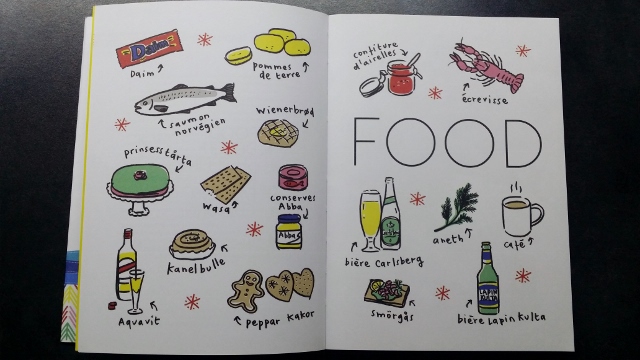 Daim
Daim
pommes
de terre
saumon
norvégien
Wienerbrød
prinsesstårta
Wasa
conserves
Abba
Abba
Kanelbulle
Aqvavit
peppar kakor
confiture
d'airelles
écrevisse
FOOD
bière Carlsberg
aneth
café
smörgås
LAPIN
KULTA
bière Lapin Kulta